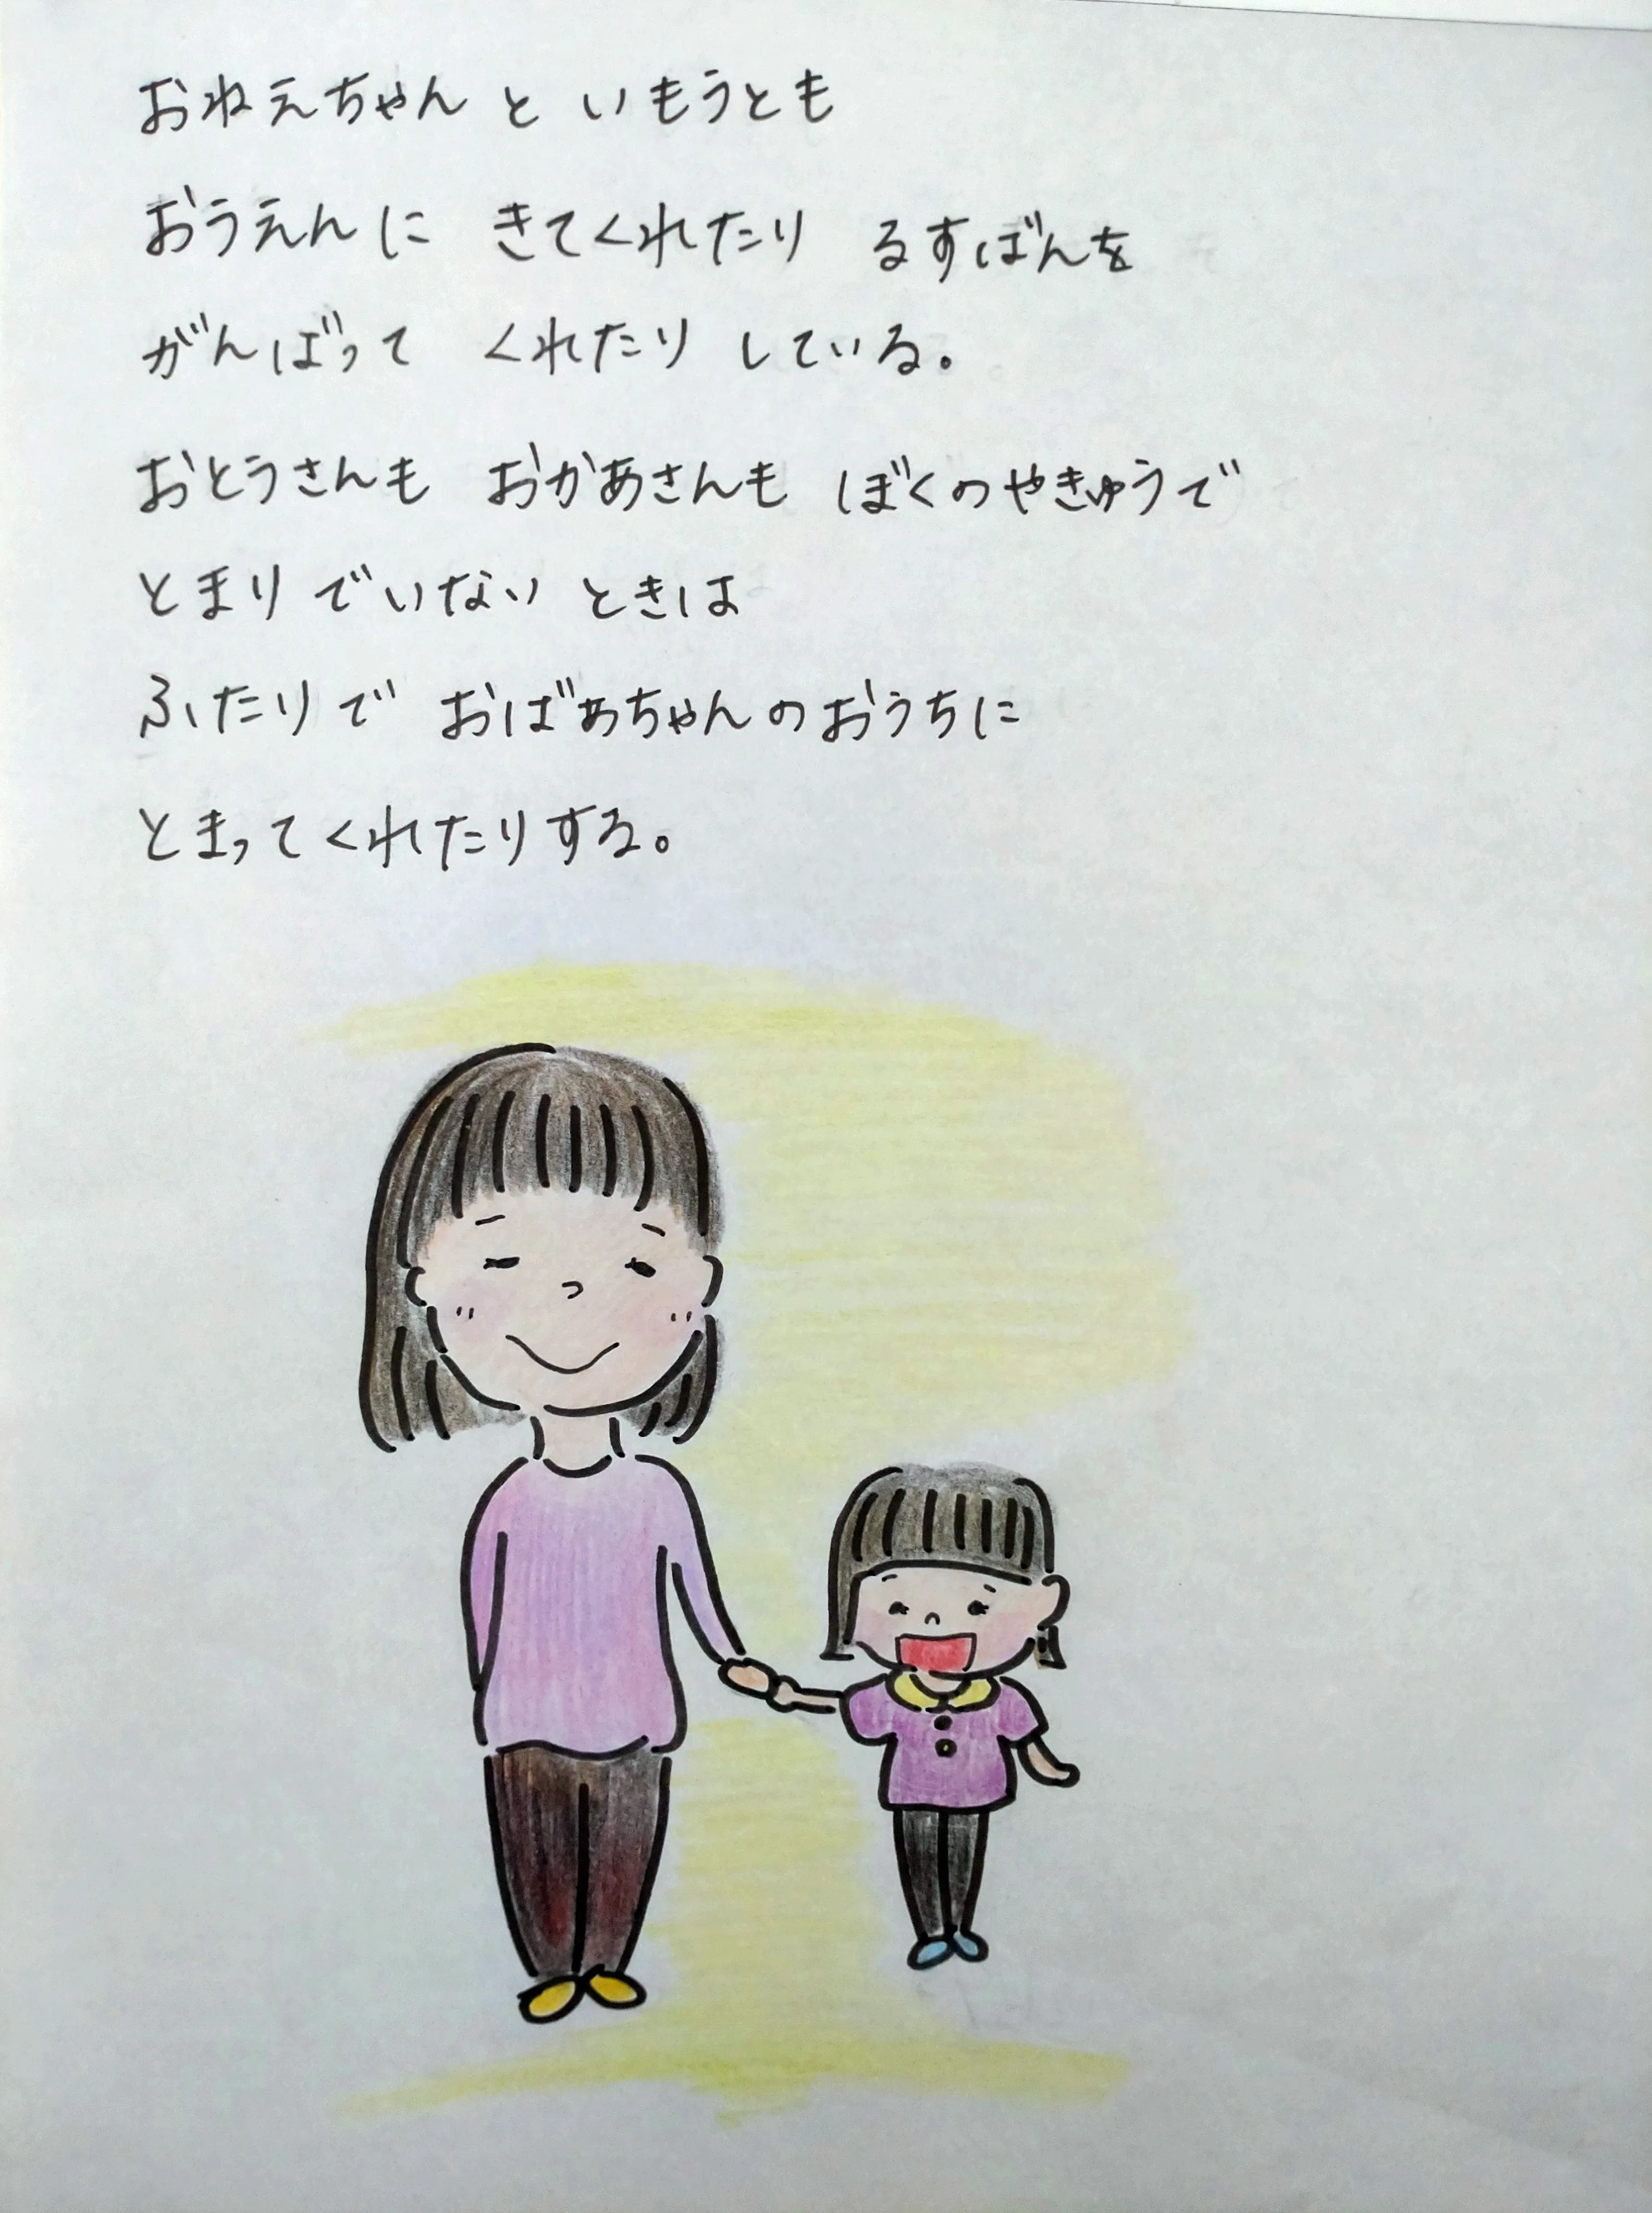 おねえちゃん と いもうとも
おうえんに きてくれたり るすばんを
がんばって くれたり している。
おとうさんも おかあさんも ぼくのやきゅうで
とまり でいない ときは
ふたりで おばあちゃんのおうちに
とまってくれたりする。